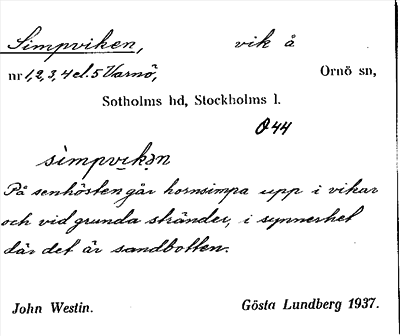 Simpviken, vik å
nr 1, 2, 3, 4 el. 5 Varnö, Ornö sn,
Sotholms hd, Stockholms l.
Ö 44
sìmpvıkən
På senhösten går hornsimpa upp i vikar
och vid grunda stränder, i synnerhet
där det är sandbotten.
John Westin. Gösta Lundberg 1937.